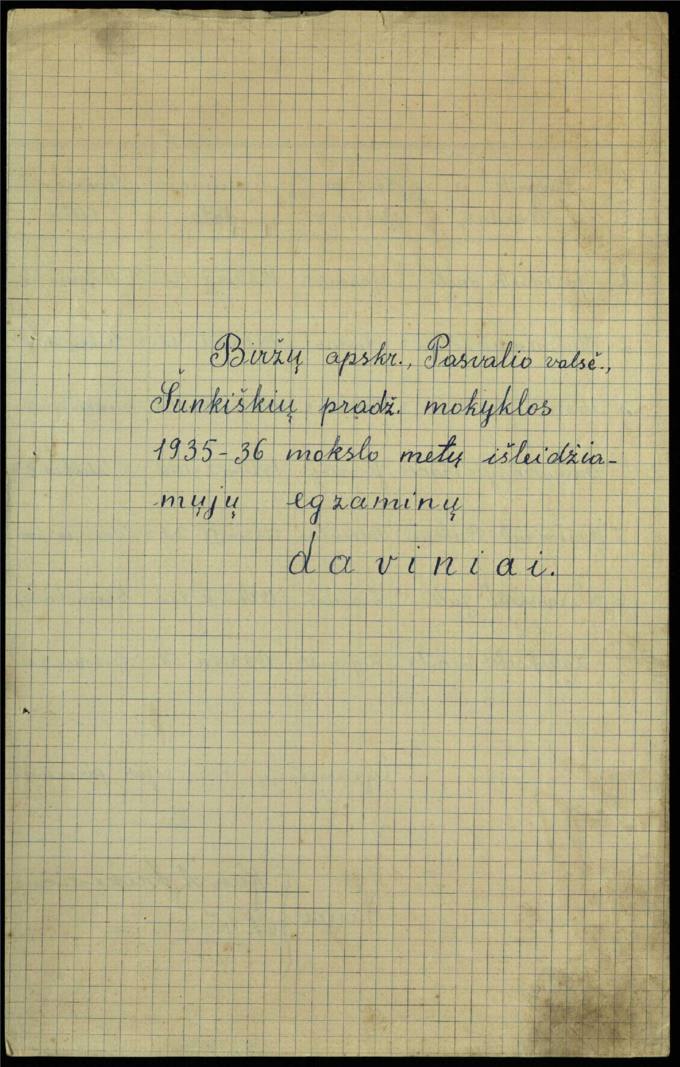 Biržų apskr., Pasvalio valsč.,
Šunkiškių pradž. mokyklos
1935-36 mokslo metų išleidžia-
mųjų egzaminų
daviniai.